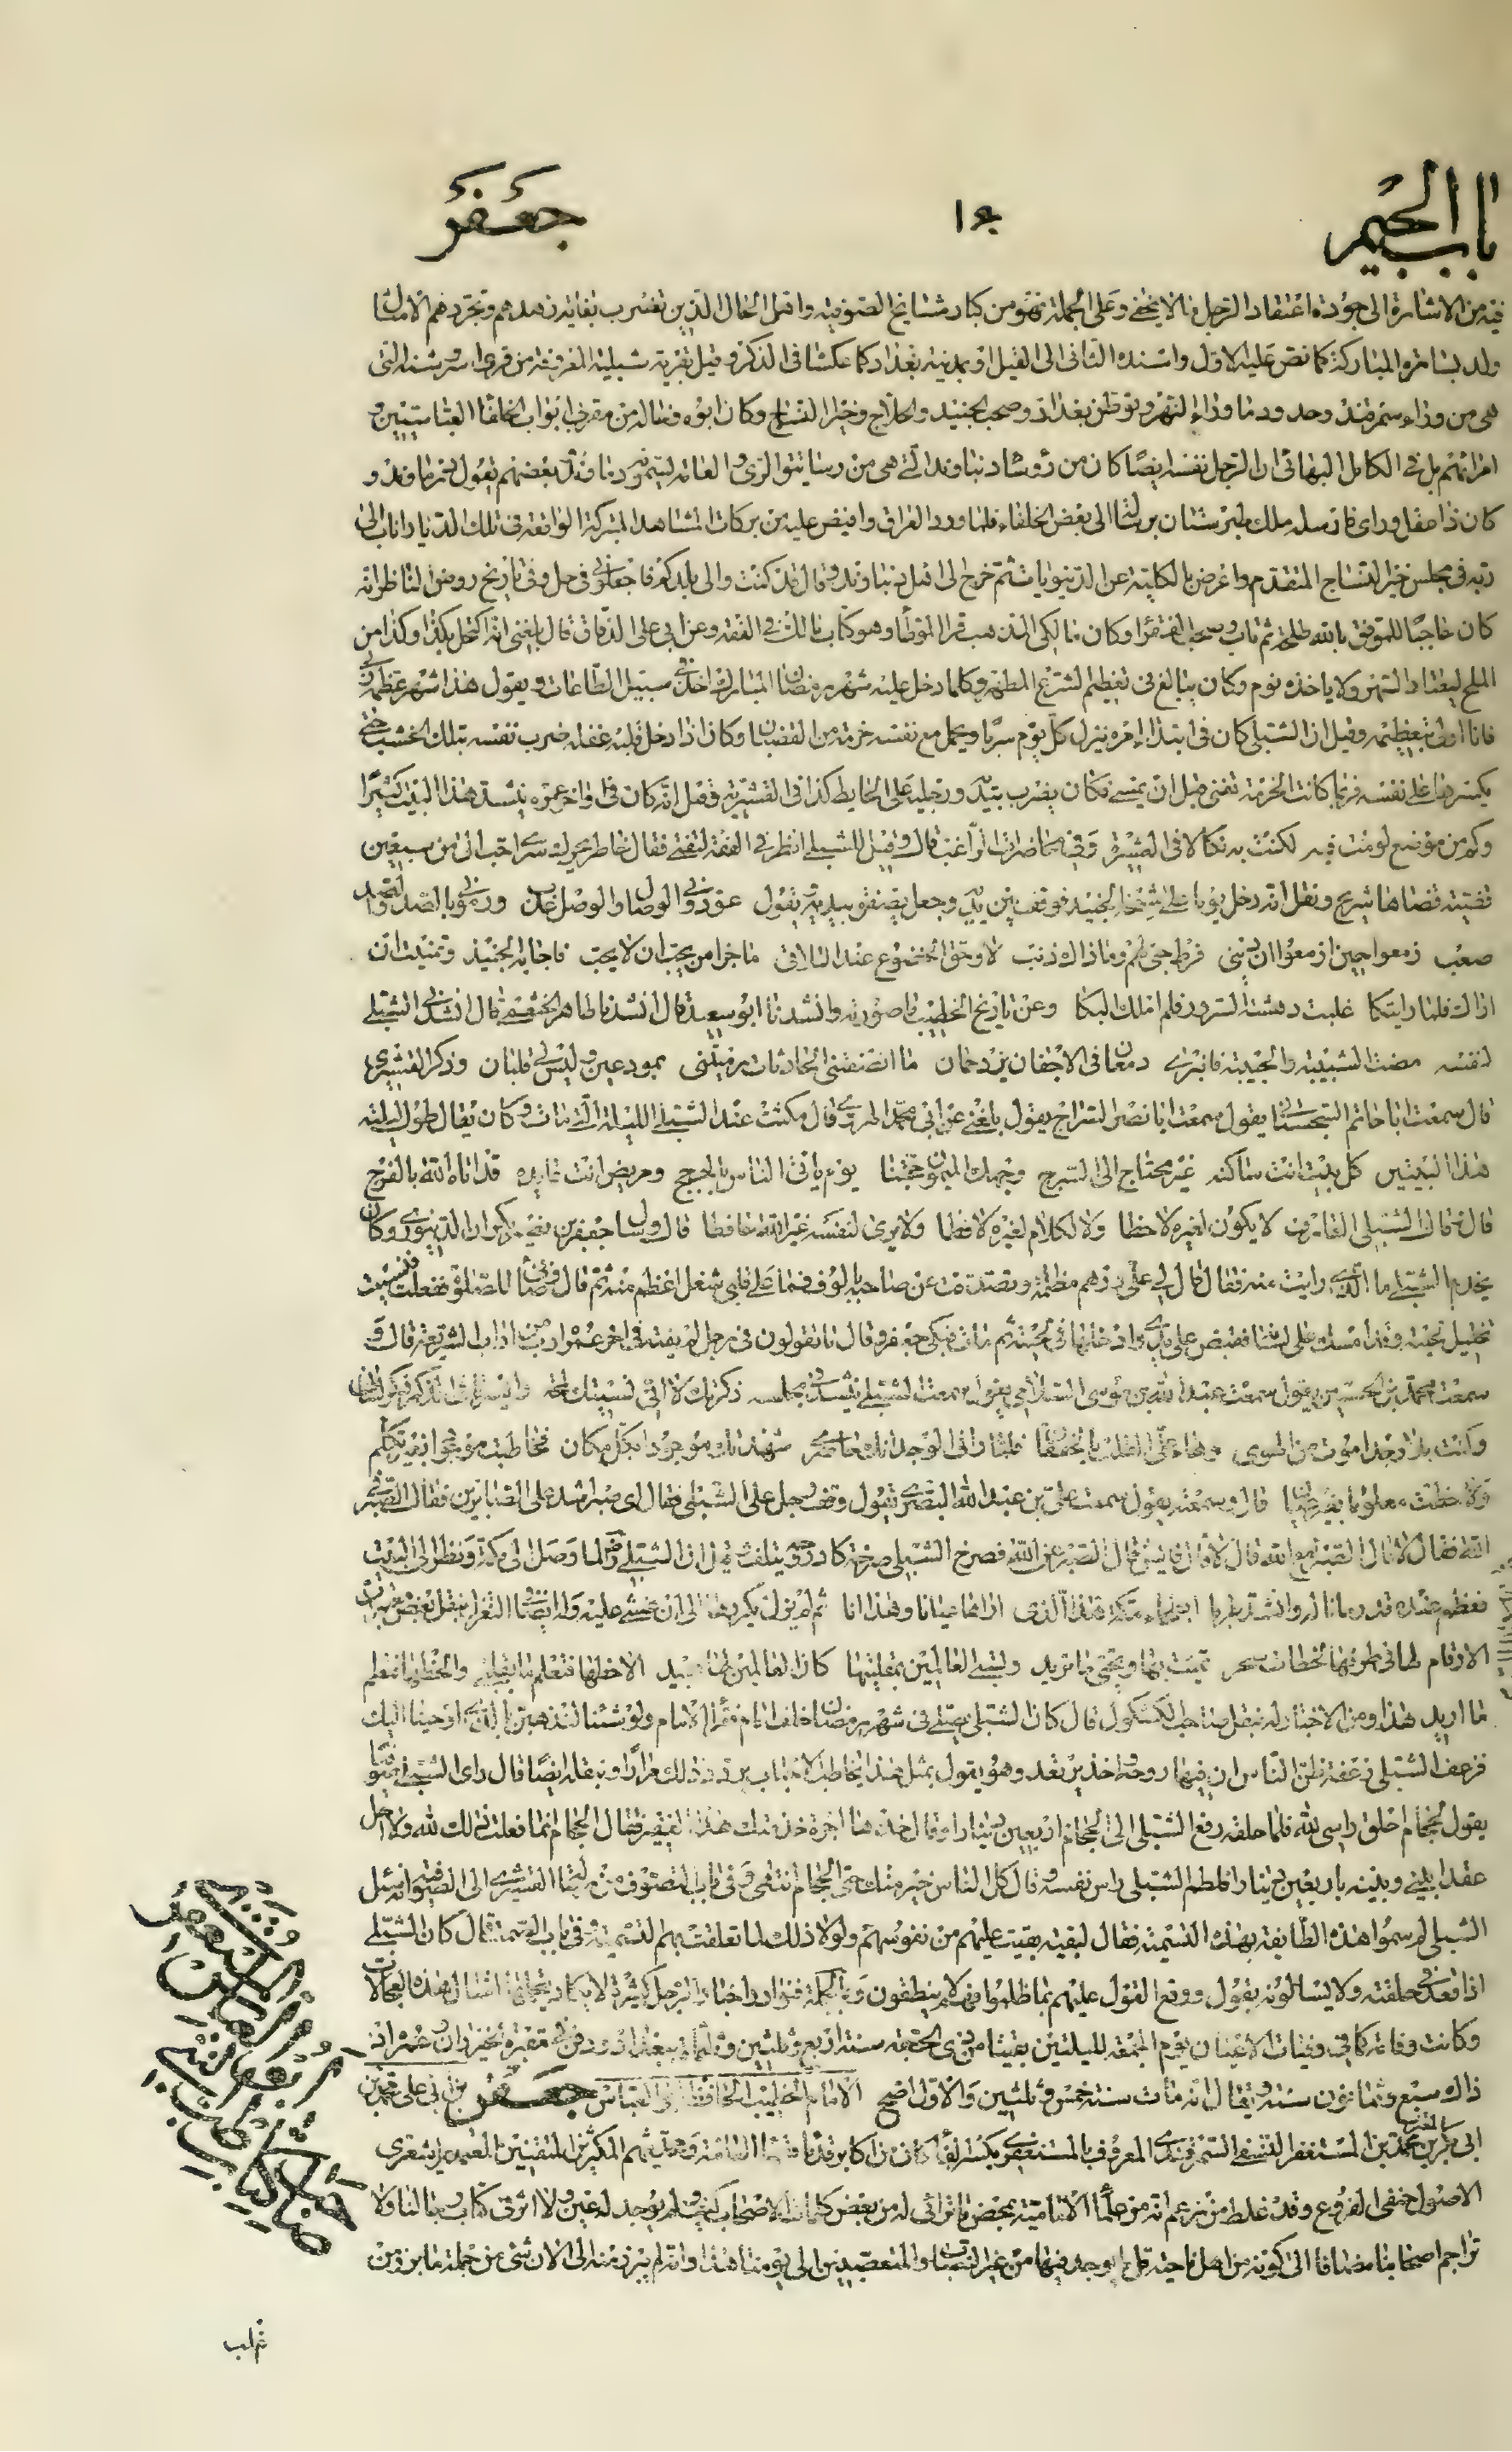 باب الجيم
جعفر
فيه من الاشارة الى جودة اعتقاد الرجل ما لا يخفى وعلى الجملة فهو من كبار مشايخ الصوفيه واهل الحال الذين تضرب بغاية زهدهم وتجردهم الامثال
ولد بسامره المباركة كما نص عليه الاول واسنده الثانى الى القيل او بمدينة بغداد كما عكسا فى الذكر وقيل بقرية شبلية المعروفة من قرى اسروشنه التى
هى من وراء سمرقند وحدود ما وراء النهر وتوطن بغداد وصحب الجنيد والحلاج وخير النساج وكان ابوه وخاله من مقربى ابواب الخلفا العباسيين و
امرائهم بل فى الكامل البهائى ان الرجل نفسه ايضًا كان من رؤسا دنباوند التى هى من رساتيق الرى والعامه يسمونه دماوند بعضهم يقول
كان ذا عقل وراى فارسله ملك طبرستان برسالة الى بعض الخلفاء فلما ورد العراق وافيض عليه من بركات المشاهد المتبركة الواقعه فى تلك الديار اناب الى
ربه فى مجلس خير النساج المتقدم واعرض بالكلية عن الدنيويات ثم خرج الى اهل دنباوند وقال قد كنت والى بلدكم فاجعلونى فى حل وفى تاريخ روض المناظر انه
كان حاجبًا للموفق بالله طلحة ثم تاب وصحب الفقراء وكان مالكى المذهب قرا الموطأ وهو كتاب مالك فى الفقه وعن ابى على الدقاق قال بلغنى انه اكتحل بكذا وكذا من
الملح ليعتاد السهر ولا ياخذه نوم وكان يبالغ فى تعظيم الشرع المطهر وكلما دخل عليه شهر رمضان المبارك اخذ فى سبيل الطاعات ويقول هذا شهر عظمه ربى
فانا اولى بتعظيمه وقيل ان الشبلى كان فى ابتداء امره ينزل كل يوم سربًا ويحمل مع نفسه خرمة من القضبان وكان اذا دخل قلبه غفلة ضرب نفسه بتلك الخشب حتى
يكسرها على نفسه فربما كانت الخرمة تفنى قبل ان يمسى فكان يضرب بيديه ورجليه على الحايط كذا فى القشيرية وفيه انه كان فى اواخر عمره ينشد هذا البيت كثيرًا
وكم من موضع لو مت فيه لكنت به نكالا فى العشيره وفى محاضرات الراغب قال وقيل للشبلى انظر فى الفقه لتفتى فقال خاطر يحرك سرى احب الى من سبعين
قضية قضاها شريح ونقل انه دخل يوما على شيخه الجنيد فوقف بين يديه وجعل يصفق بيديه ويقول عودونى الوصال والوصل عذب ورمونى بالصد والصد
صعب زعموا حين ازمعوا ان ذنبى فرط حبى لهم وما ذاك ذنب لا وحق الخضوع عند التلاقى ما جزا من يحب ان لا يحب فاجابه الجنيد وتمنيت ان
اراك فلما رايتكا غلبت دهشة السرور فلم املك البكا وعن تاريخ الخطيب ما صورته وانشدنا ابو سعيد قال انشدنا طاهر الخثعمى قال انشدنى الشبلى
لنفسه مضت الشبيبة والحبيبة فانبرى دمعان فى الاجفان يزدحمان ما انصفتنى الحادثات رميننى بمودعين وليس لى قلبان وذكر القشيرى
قال سمعت ابا حاتم السجستانى يقول سمعت ابا نصر السراج يقول بلغنى عن ابى محمد الهروى قال مكثت عند الشبلى الليلة التى مات وكان يقال طول ليلته
هذا البيتين كل بيت انت ساكنه غير محتاج الى السرج وجهك الميمون حجتنا يوم ياتى الناس بالحجج ومريض انت عايده قد اتاه الله بالفرج
قال وقال الشبلى العارف لا يكون لغيره لاحظا ولا لكلام لغيره لافظا ولا يرى لنفسه غير الله حافظا قال وسال جعفر بن نصير بكران الدينورى وكان
يخدم الشبلى ما الذى رايت منه فقال قال لى على درهم مظلمة وتصدقت عن صاحبه بالوف فما على قلبى شغل اعظم منه ثم قال وضئنى للصلوة ففعلت فنسيت
تخليل لحيته وقد امسك على لسانه فقبض على يدى وادخلها فى لحيته ثم مات فبكى جعفر وقال ما تقولون فى رجل لم يفته فى اخر عمره ادب من اداب الشريعة قال و
سمعت محمد بن الحسين يقول سمعت عبد الله بن موسى السلامى يقول سمعت الشبلى ينشد فى مجلسه ذكرتك لا انى نسيتك لمحة وايسر ما فى الذكر ذكر لسانى
وكدت بلا وجد اموت من الهوى وهام على القلب بالخفقان فلما رانى الوجد انك حاضرى شهدتك موجودا بكل مكان فخاطبت موجودا بغير تكلم
ولاحظت معلوما بغير عيان قال وسمعته يقول سمعت على بن عبد الله البصرى يقول وقف رجل على الشبلى فقال اى صبر اشد على الصابرين فقال الصبر فى
الله فقال لا قال الصبر مع الله قال لا قال فايش قال الصبر عن الله فصرخ الشبلى صرخة كاد روحه يتلف قيل ان الشبلى لما وصل الى مكة ونظر الى البيت
فعظم عنده قدره ما ناله وانشد طربا ابطحاء مكة هذا الذى اراه عيانا وهذا انا ثم لم يزل يكررها الى ان غشى عليه
ما اريد هذا ومن الاخبار له بنقل صاحب الكشكول قال كان الشبلى يصلى فى شهر رمضان خلف امام فقرا الامام ولو شئنا لنذهبن بالذى اوحينا اليك
فزعق الشبلى زعقة ظن الناس ان فيها روحه واخذ يرتعد وهو يقول بمثل هذا يخاطب الاحباب يردد ذلك مرارًا وبنقله ايضًا قال راى الشبلى
يقول للحجام احلق راسى لله فلما حلقه رفع الشبلى الى الحجام اربعين دينارا وقال خذها اجرة خدمتك هذا الفقير فقال الحجام انما فعلت ذلك لله ولا احل
عقدا بينى وبينه باربعين دينارا فلطم الشبلى راس نفسه وقال كل الناس خير منك حتى الحجام انتهى وفى باب التصوف من القشيرى الى الصوفية وانه سئل
الشبلى لم سموا هذه الطايفة بهذه التسمية فقال لبقية بقيت عليهم من نفوسهم ولولا ذلك لما تعلقت بهم التسمية وفى باب قال كان الشبلى
اذا قعد فى حلقته ولا يسالونه يقول ووقع القول عليهم بما ظلموا فهم لا ينطقون وبالجملة فنوادر اخبار الرجل كثيرة
وكانت وفاته كما فى وفيات الاعيان يوم الجمعة لليلتين بقيتا من ذى الحجة سنة اربع وثلثين وثلثمائة ببغداد ودفن فى مقبرة خيزران وعمره اذ
ذاك سبع وثمانون سنة ويقال انه مات سنة خمس وثلثين والاول اصح الامام الخطيب الحافظ ابو العباس جعفر بن ابى على محمد بن
ابى بكر بن محمد بن المستغفر النسفى السمرقندى المعروف بالمستغفرى بكسر الفا كان من اكابر قدماء
الاصول حنفى الفروع وقد غلط من زعم انه من علما الامامية بمحض ما ترائى له من بعض كلمات الاصحاب كيف ولم يوجد له عين ولا اثر فى كتاب رجالنا ولا
تراجم اصحابنا مضافا الى كونه من اهل ناحية قل ان يوجد فيها من غير النصاب والمتعصبين الى يومنا هذا وانه لم يبرز منه الى الان شئ من جملة ما برز من